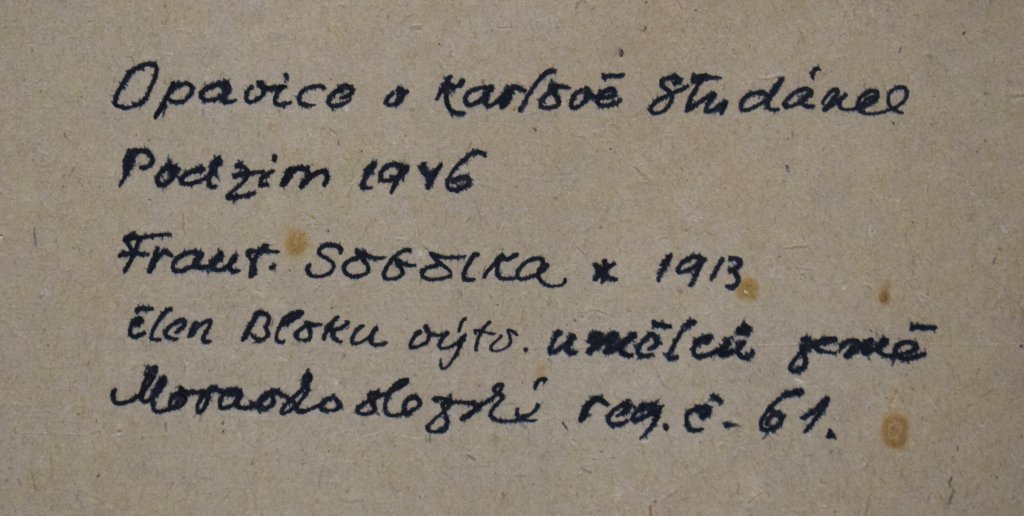 Opavice v Karlově Studánce
Podzim 1946
Frant. SOBOLKA * 1913
člen Bloku výtv. umělců země
Moravskoslezské reg. č. 61.